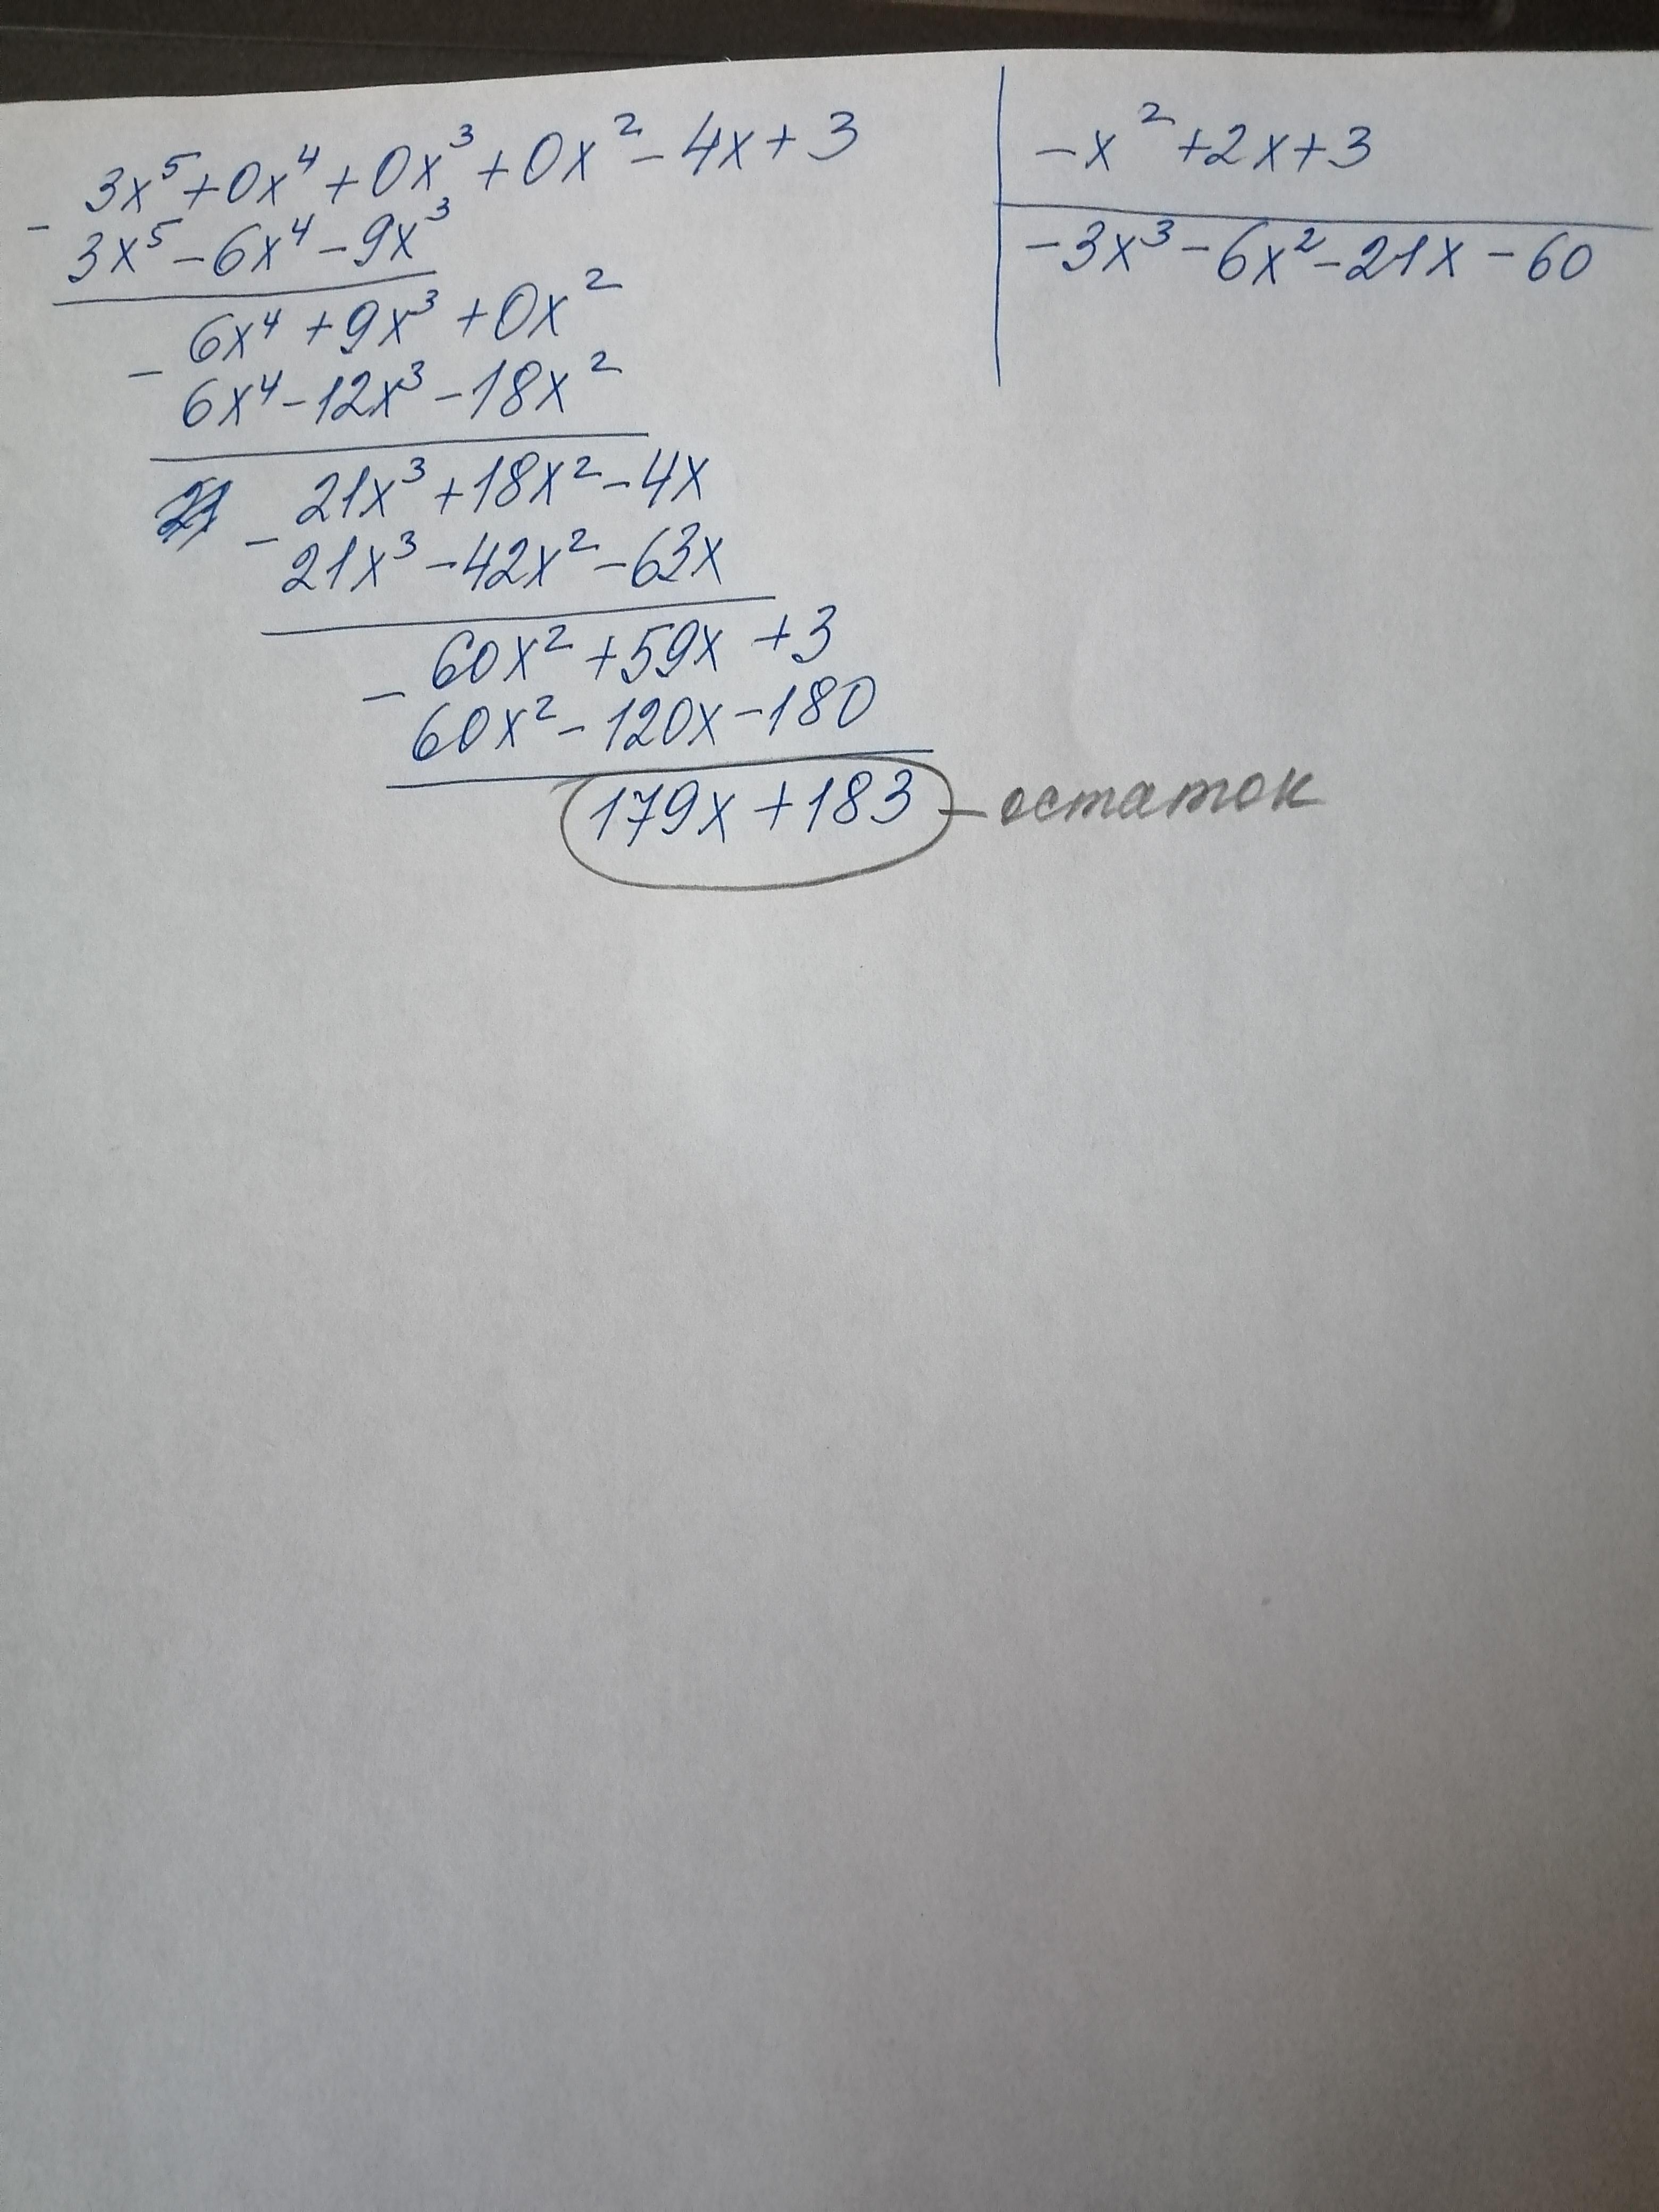 3x⁵+0x⁴+0x³+0x²-4x+3
-x²+2x+3
-
3x⁵-6x⁴-9x³
-3x³-6x²-21x-60
6x⁴+9x³+0x²
-
6x⁴-12x³-18x²
21x³+18x²-4x
-
21x³-42x²-63x
60x²+59x+3
-
60x²-120x-180
179x+183 - остаток